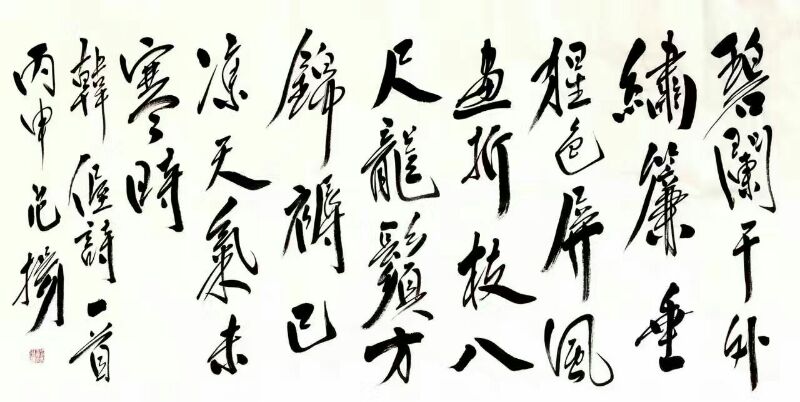 碧闌干外
繡簾垂
猩色屏風
畫折枝八
尺龍鬚方
錦褥已
涼天氣未
寒時
韓偓詩一首
丙申范揚